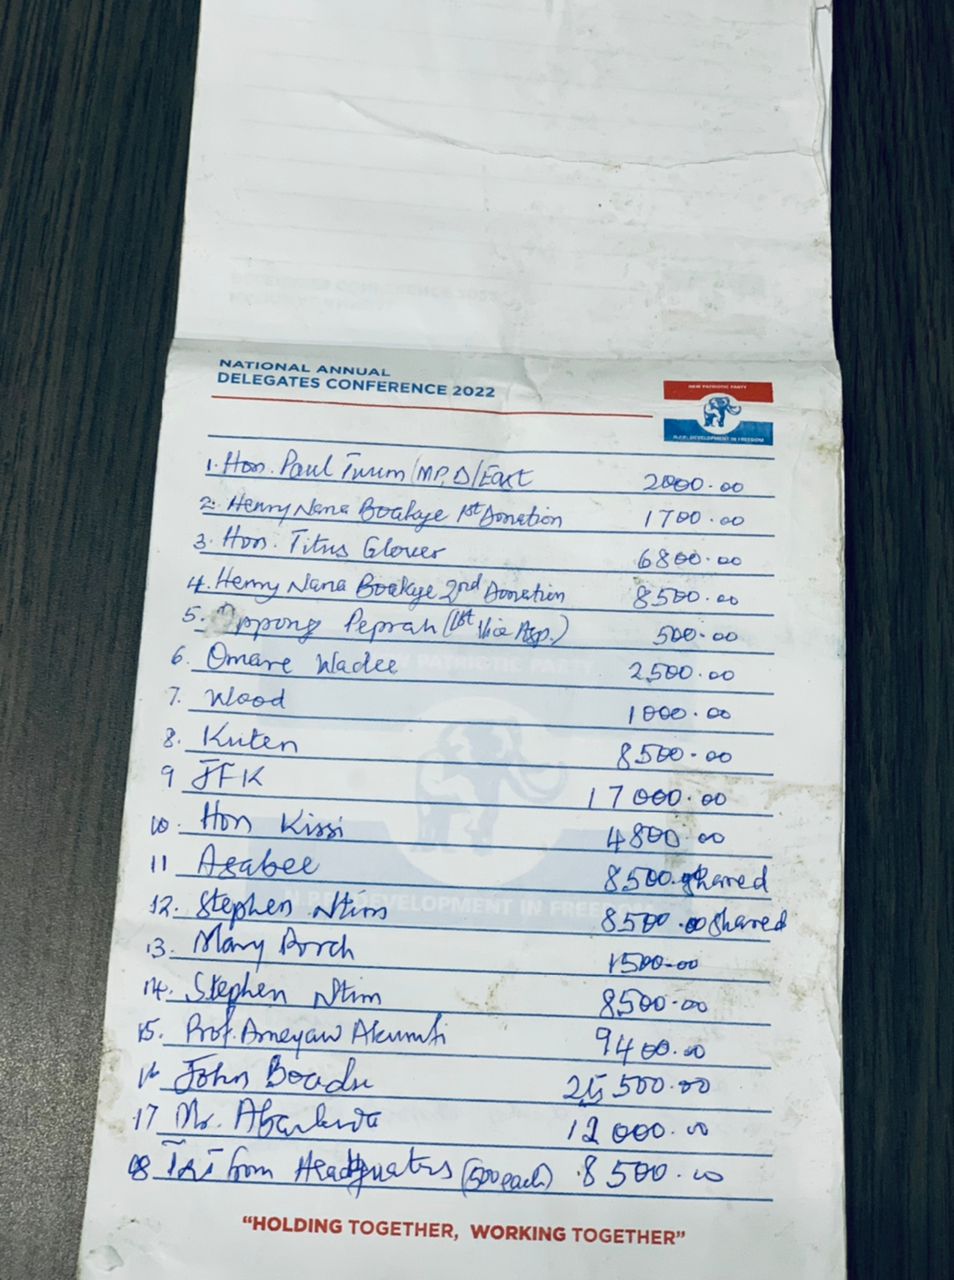 NATIONAL ANNUAL
DELEGATES CONFERENCE 2022
NEW PATRIOTIC PARTY
N.P.P. DEVELOPMENT IN FREEDOM
1. Hon. Paul Twum/MP, D/East 2000.00
2. Henry Nana Boakye 1st Donation 1700.00
3. Hon. Titus Glover 6800.00
4. Henry Nana Boakye 2nd Donation 8500.00
5. Oppong Peprah (1st Vice Asp.) 500.00
6. Omare Wadee 2,500.00
7. Wood 1000.00
8. Kuten 8500.00
9 JFK 17000.00
10. Hon Kissi 4800.00
11 Asabee 8500. shared
12. Stephen Ntim 8500.00 shared
13. Mary 1500.00
14. Stephen Ntim 8,500.00
15. Prof. Ameyaw Akumfi 9400.00
16 John Boadu 25,500.00
17 Mr. 12000.00
18 from Headquaters (500 each) 8500.00
NEW PATRIOTIC PARTY
N.P.P. DEVELOPMENT IN FREEDOM
"HOLDING TOGETHER, WORKING TOGETHER"